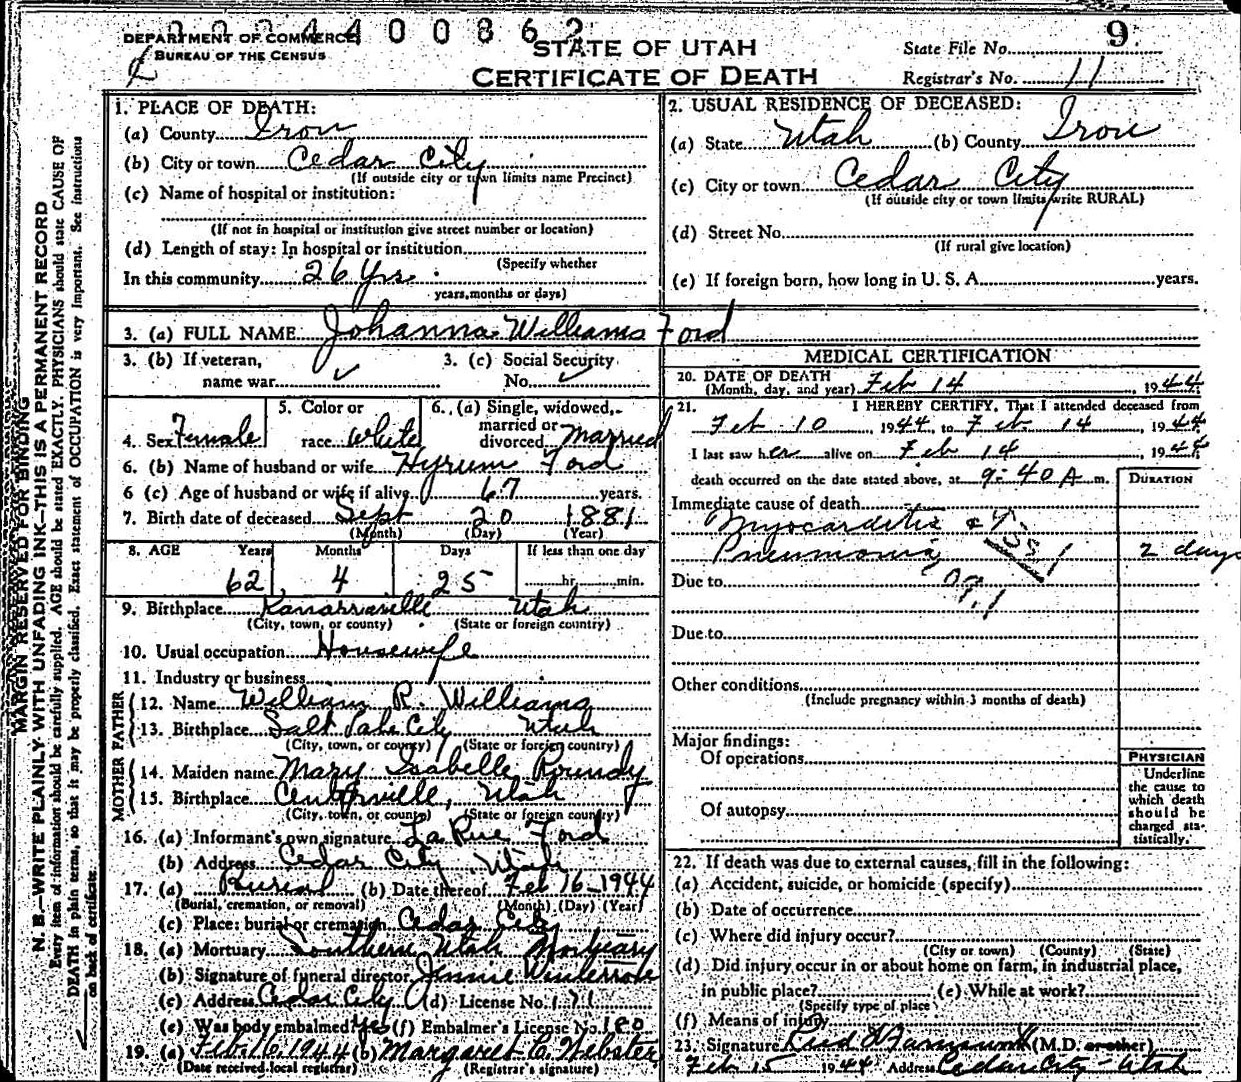 0024400862
DEPARTMENT OF COMMERCE
BUREAU OF THE CENSUS
STATE OF UTAH
CERTIFICATE OF DEATH
State File No. 9
Registrar's No. 11
MARGIN RESERVED FOR BINDING
N. B.—WRITE PLAINLY WITH UNFADING INK—THIS IS A PERMANENT RECORD
Every item of information should be carefully supplied. AGE should be stated EXACTLY. PHYSICIANS should state CAUSE OF
DEATH in plain terms, so that it may be properly classified. Exact statement of OCCUPATION is very Important. See instructions
on back of certificate.
1. PLACE OF DEATH:
(a) County Iron
(b) City or town Cedar City
(If outside city or town limits name Precinct)
(c) Name of hospital or institution:
(If not in hospital or institution give street number or location)
(d) Length of stay: In hospital or institution
(Specify whether
In this community 26 Yrs.
years, months or days)
2. USUAL RESIDENCE OF DECEASED:
(a) State Utah (b) County Iron
(c) City or town Cedar City
(If outside city or town limits write RURAL)
(d) Street No.
(If rural give location)
(e) If foreign born, how long in U. S. A. years.
3. (a) FULL NAME Johanna Williams Ford
3. (b) If veteran,
name war ✓
3. (c) Social Security
No. ✓
4. Sex Female
5. Color or
race White
6. (a) Single, widowed,
married or
divorced Married
6. (b) Name of husband or wife Hyrum Ford
6 (c) Age of husband or wife if alive 67 years.
7. Birth date of deceased Sept 20 1881
(Month) (Day) (Year)
8. AGE Years Months Days If less than one day
62 4 25 hr. min.
9. Birthplace Kanarraville Utah
(City, town, or county) (State or foreign country)
10. Usual occupation Housewife
11. Industry or business
FATHER
12. Name William R. Williams
13. Birthplace Salt Lake City Utah
(City, town, or county) (State or foreign country)
MOTHER
14. Maiden name Mary Isabelle Roundy
15. Birthplace Centerville, Utah
(City, town, or county) (State or foreign country)
16. (a) Informant's own signature LaRue Ford
(b) Address Cedar City Utah
17. (a) Burial (b) Date thereof Feb 16-1944
(Burial, cremation, or removal) (Month) (Day) (Year)
(c) Place: burial or cremation Cedar City
18. (a) Mortuary Southern Utah Mortuary
(b) Signature of funeral director Jennie Winterrose
(c) Address Cedar City (d) License No. 171
(e) Was body embalmed? Yes (f) Embalmer's License No. 180
19. (a) Feb 16, 1944 (b) Margaret C. Webster
(Date received local registrar) (Registrar's signature)
MEDICAL CERTIFICATION
20. DATE OF DEATH
(Month, day, and year) Feb 14, 1944
21. I HEREBY CERTIFY, That I attended deceased from
Feb 10, 1944, to Feb 14, 1944
I last saw her alive on Feb 14, 1944
death occurred on the date stated above, at 9:40 A m.
DURATION
Immediate cause of death
Myocarditis &
Pneumonia 2 days
Due to
Due to
Other conditions
(Include pregnancy within 3 months of death)
Major findings:
Of operations
Of autopsy
PHYSICIAN
Underline
the cause to
which death
should be
charged sta-
tistically.
22. If death was due to external causes, fill in the following:
(a) Accident, suicide, or homicide (specify)
(b) Date of occurrence
(c) Where did injury occur?
(City or town) (County) (State)
(d) Did injury occur in or about home on farm, in industrial place,
in public place? (e) While at work?
(Specify type of place)
(f) Means of injury
23. Signature (M.D. or other)
Feb 15 1944 Address Cedar City Utah